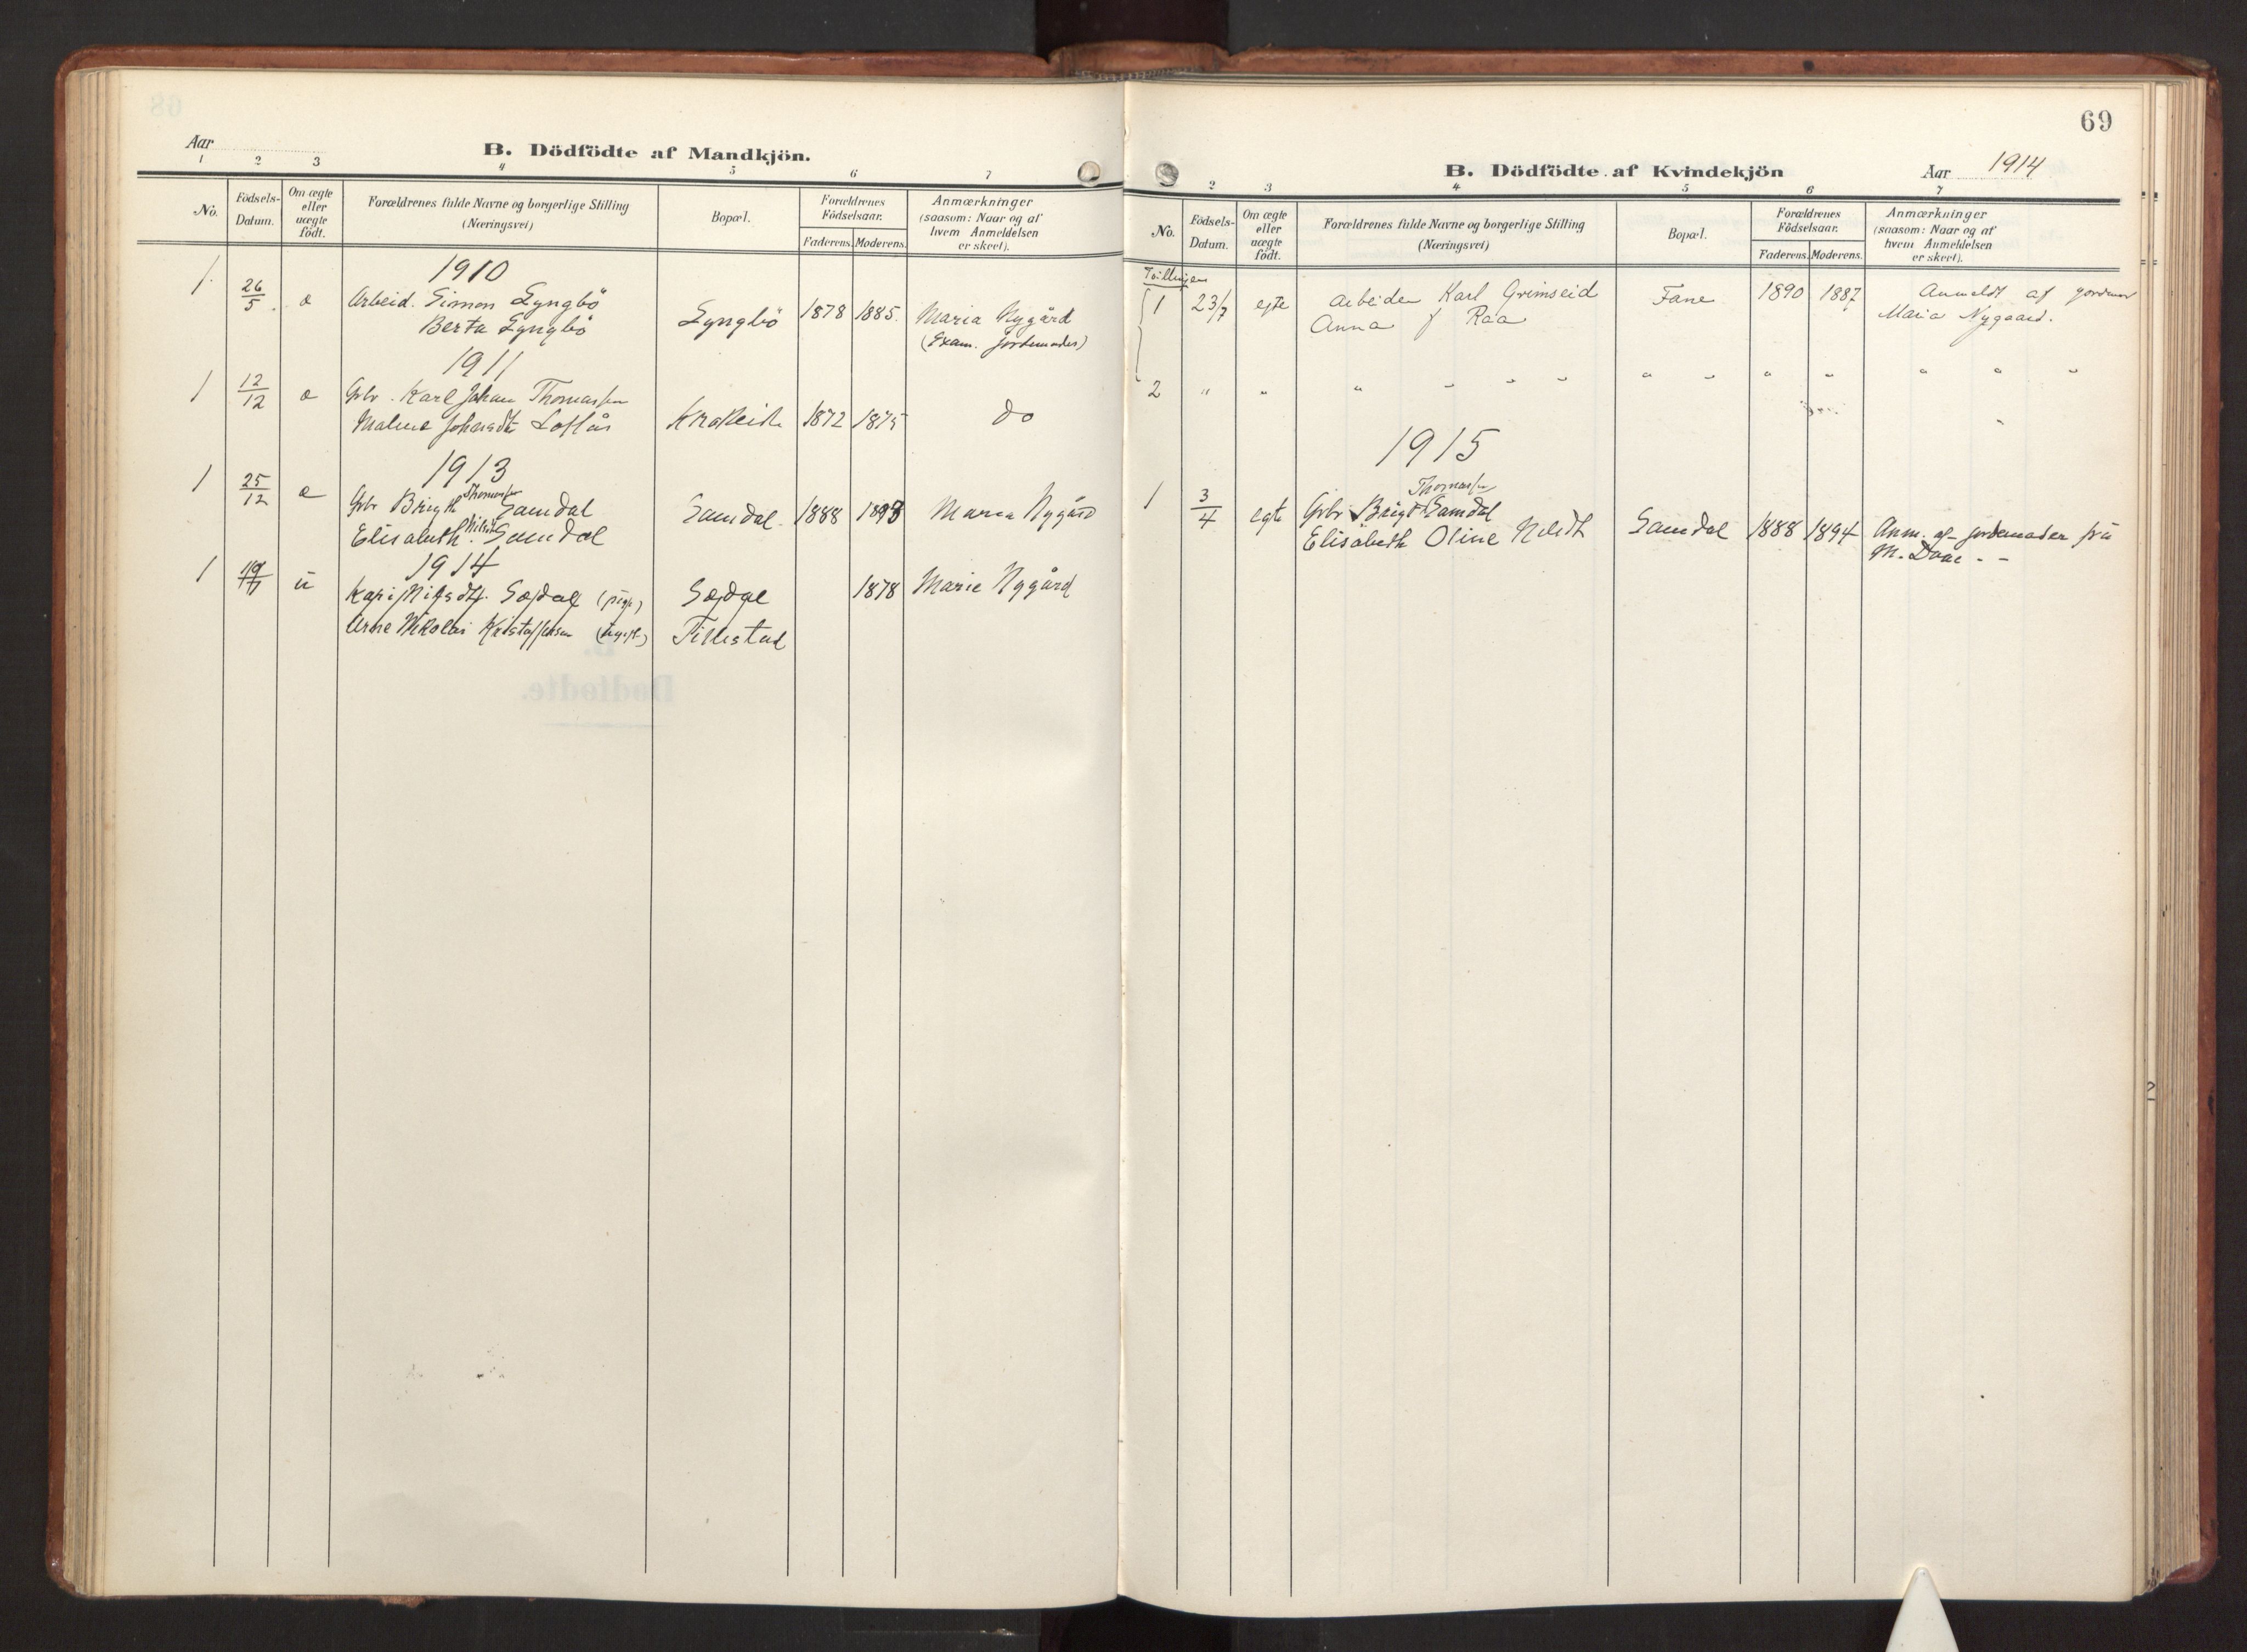 Aar
B. Dödfödte af Mandkjön.
1 2 3 4 5 6 7
No.
Födsels-Datum.
Om ægte eller uægte födt.
Forældrenes fulde Navne og borgerlige Stilling (Næringsvei)
Bopæl.
Forældrenes Födselsaar.
Faderens. Moderens.
Anmærkninger (saasom: Naar og af hvem Anmeldelsen er skeet).
1910
1. 26/5. Arbeid. Simon Lyngbö
Berta Lyngbö Lyngbö 1878 1885. Maria Nygård
(Exam. jordemoder)
1911
1 12/12 Gbr. Karl Johan Thomassen
Johansdtr Loftås 1872 1875 do
1913
1 25/12 Gbr Brigt Thomassen Samdal
Elisabeth Nilsdtr. Samdal Samdal. 1888 1893 Maria Nygård
1914
1 u Kari Nilsdtr. (pige) 1878 Marie Nygård
Arne Nikolai Kristoffersen
69
B. Dödfödte af Kvindekjön
Aar 1914
2 3 4 5 6 7
No.
Födsels-Datum.
Om ægte eller uægte födt.
Forældrenes fulde Navne og borgerlige Stilling (Næringsvei)
Bopæl.
Forældrenes Födselsaar.
Faderens. Moderens.
Anmærkninger (saasom: Naar og af hvem Anmeldelsen er skeet).
Tvillinger
1 23/7 egte Arbeider Karl Grimseid Fane 1890 1887 Anmeldt af jordmor
Anna f Raa Maria Nygaard.
2 " " " " " " " " " " " " "
1915
1 3/4 egte Gbr. Brigt Thomassen Samdal
Elisabeth Oline Nilsdtr Samdal 1888 1894 Anm. af jordemoder fru
M. Daae - -